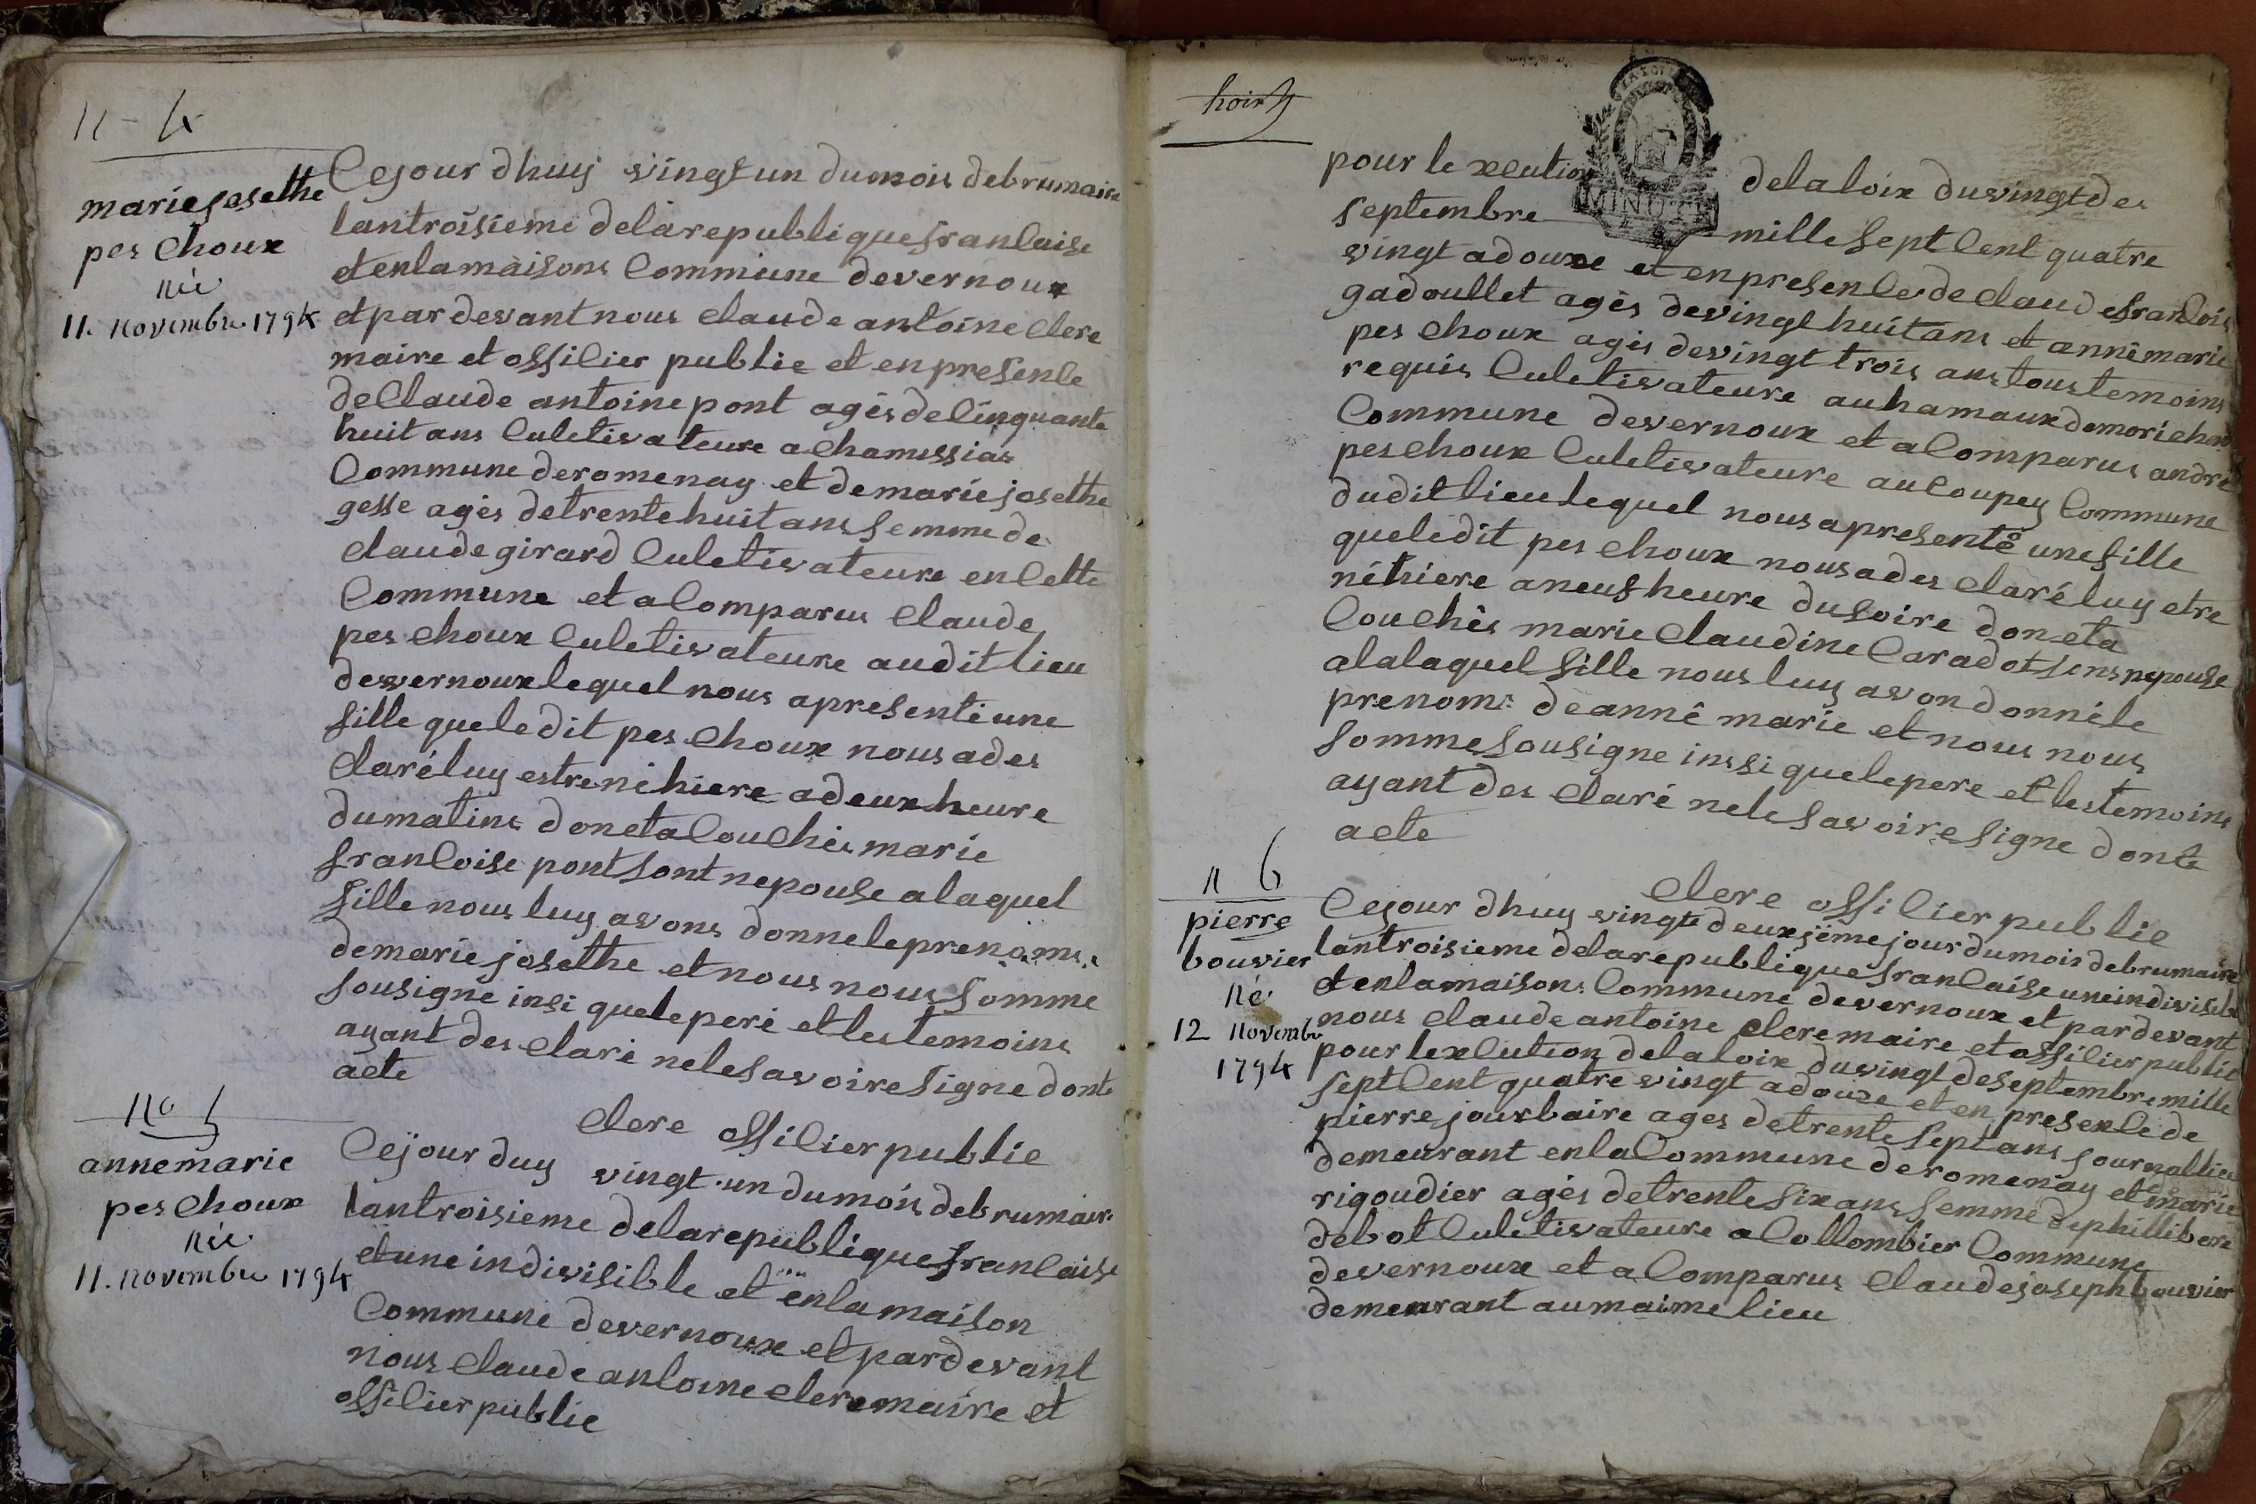 n - 4
marie josethe
pes choux
née
11. novembre 1794
Cejour dhuy vingt un dumois debrumaire
lantroisieme delarepublique francaise
et enlamaisons Commune devernoux
et par devant nous claude antoine clere
maire et officier public et enpresence
deClaude antoine pont agés decinquante
huit ans Culetivateure a chamissias
Commune deromenay et demarie josethe
gesse agés detrente huit ans femme de
claude girard Culetivateure en Cette
Commune et a Comparus Claude
pes choux Culetivateure audit lieu
devernoux lequel nous apresenté une
fille queledit pes choux nous ades
claré luy estre néhiere adeux heure
dumatins donct a Couchés marie
francoise pont sont nepouse alaquel
fille nous luy avons donnéleprenoms
demarie josethe et nous nous somme
sousigne insi quele peré et les temoins
ayant des claré nele savoire signe dont
acte
clere officier public
no 5
annemarie
pes choux
née
11. novembre 1794
Cejour duy vingt un dumois debrumaire
lantroisieme delarepublique francaise
et une indivisible et enlamaison
Commune devernoux et pardevant
nous claude antoine clere maire et
officier public
pour le xecution delaloix duvingt des
septembre mille sept Cent quatre
vingt adouxe et enpresence de claude francois
gadoullet agés devingt huit ans et annê marie
pes choux agés devingt trois ans tous temoins
requis Culetivateure auhamaux demorichand
Commune devernoux et a Comparus andré
pes choux Culetivateure au Coupey Commune
dudit lieu lequel nous apresenté une fille
queledit pes choux nous ades claré luy etre
néhiere aneuf heure du soire donct a
Couchés marie claudine Caradot sons nepouse
alalaquel fille nous luy avon donnéle
prenoms deannê marie et nous nous
somme sousigne inssi quele pere et les temoins
ayant des claré nele savoire signe dont
acte
clere officier public
n 6
pierre
bouvier
né
12 novembre
1794
Cejour dhuy vingte deuxjéme jour dumois debrumaire
lantroisieme delarepublique francaise uneindivisible
et enlamaisons Commune devernoux et par devant
nous claude antoine clere maire et officier public
pour lexecution delaloix duvingt deseptembre mille
sept Cent quatre vingt adouze et en presence de
pierre jousbaire ages detrente sept ans journallier
demeurant enla Commune deromenay et marie
rigoudier agés detrente six ans femme dephillibere
debot Culetivateure a Collombier Commune
devernoux et a Comparus claude joseph bouvier
demeurant aumaime lieu
MINUTE